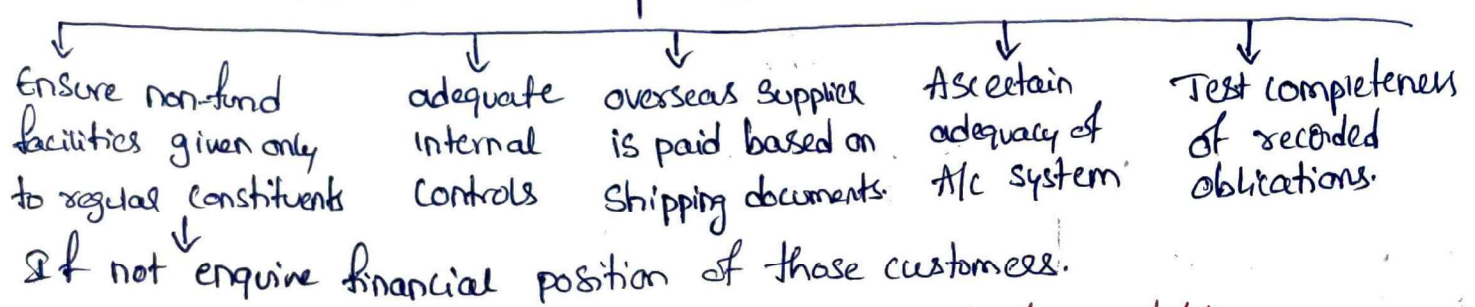 Ensure non-fund
facilities given only
to regular constituents
adequate
internal
controls
overseas supplier
is paid based on
shipping documents.
Asceetain
adequacy of
A/c system
Test completeness
of recorded
oblications.
If not enquire financial position of those customers.